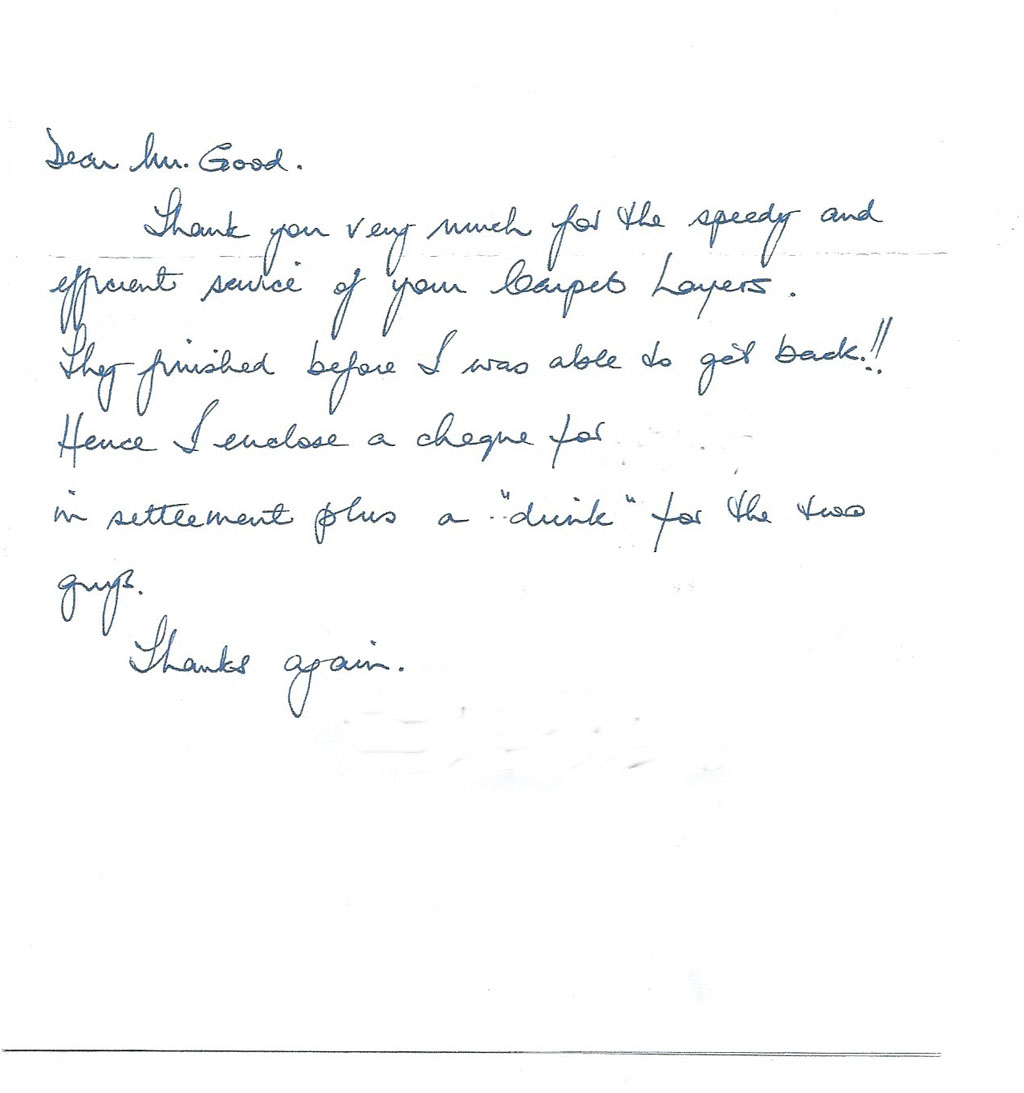 Dear Mr. Good.
Thank you very much for the speedy and
efficient service of your Carpet Layers.
They finished before I was able to get back.!!
Hence I enclose a cheque for
in settlement plus a "drink" for the two
guys.
Thanks again.